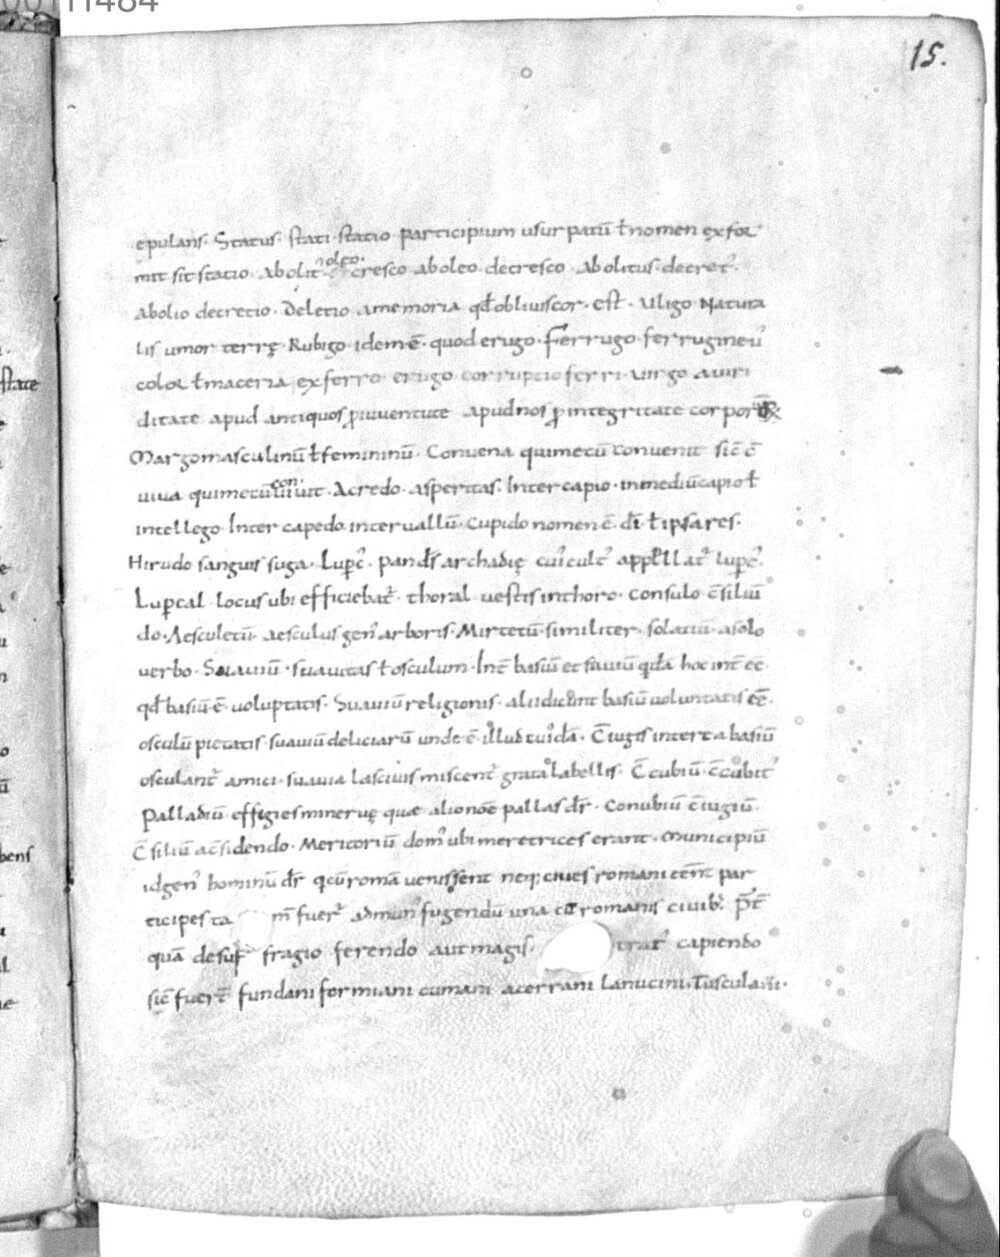 15.
epulans. Status. stati. statio participium usurpatū ƚ nomen ex for
mit sit statio. Abolit. oleo. cresco aboleo. decresco. Abolitus. decret᾽.
abolio decretio. Deletio a memoria qđ obliviscor. est. Uligo Natura
lis umor terrę. Rubigo. idem ē. quod erugo. Ferrugo. ferrugineu᾽
color ƚ maceria ex ferro erugo corruptio ferri. Virgo a viri
ditate apud antiquos ꝓ iuuentute apud nos ꝓ integritate corporis
Margo masculinū ƚ femininū. Conuena qui mecū conuenit sic̄ ē
uiua qui mecū con uiuit. Acredo. asperitas. Intercapio. in mediū capio ƚ
intellego. Inter capedo. interuallū. Cupido nomen ē. dī. ƚ ipsa res.
Hirudo sanguis suga. Luꝑc᾽. pan dr̄ archadię cui᾽ cult᾽ appellat᾽ luꝑc᾽.
Luꝑcal. locus ubi efficiebat᾽. thoral uestis in thoro. consulo c̄siliū
do. Aesculetū aesculus gen᾽ arboris. Mirtetū. similiter. solatiū. a solo
uerbo. Suauiū. suauitas ƚ osculum. Int̄ basiū et sauiū qđā hoc int̄ ēē.
qđ basiū ē. uoluptatis. Suauiū religionis. alii dicunt basiū uoluntatis ēē.
osculū pietatis. suauiū deliciarū unde ē. illud cui᾽dā. C̄iugis interea basiū
osculant᾽ amici. suauia lasciuis miscent᾽ grata labellis. C̄cubiū. c̄cubit᾽
Palladiū. effigies mineruę quae alio noē pallas dr̄. Conubiū c̄iugiū.
C̄siliū a c̄sidendo. Meritoriū dom᾽ ubi meretrices erant. Municipiū
id gen᾽ hominū dr̄ q cū romā uenissent neq; ciues romani eēnt par
ticipes ta m̄ fuer᾽ ad mun᾽ fugendū una cū romanis ciuib᾽. p̄t̄
quā de suf fragio ferendo aut magis. trat᾽ capiendo
sic̄ fuert̄ fundani formiani cumani acerrani Lanucini. Tusculani.